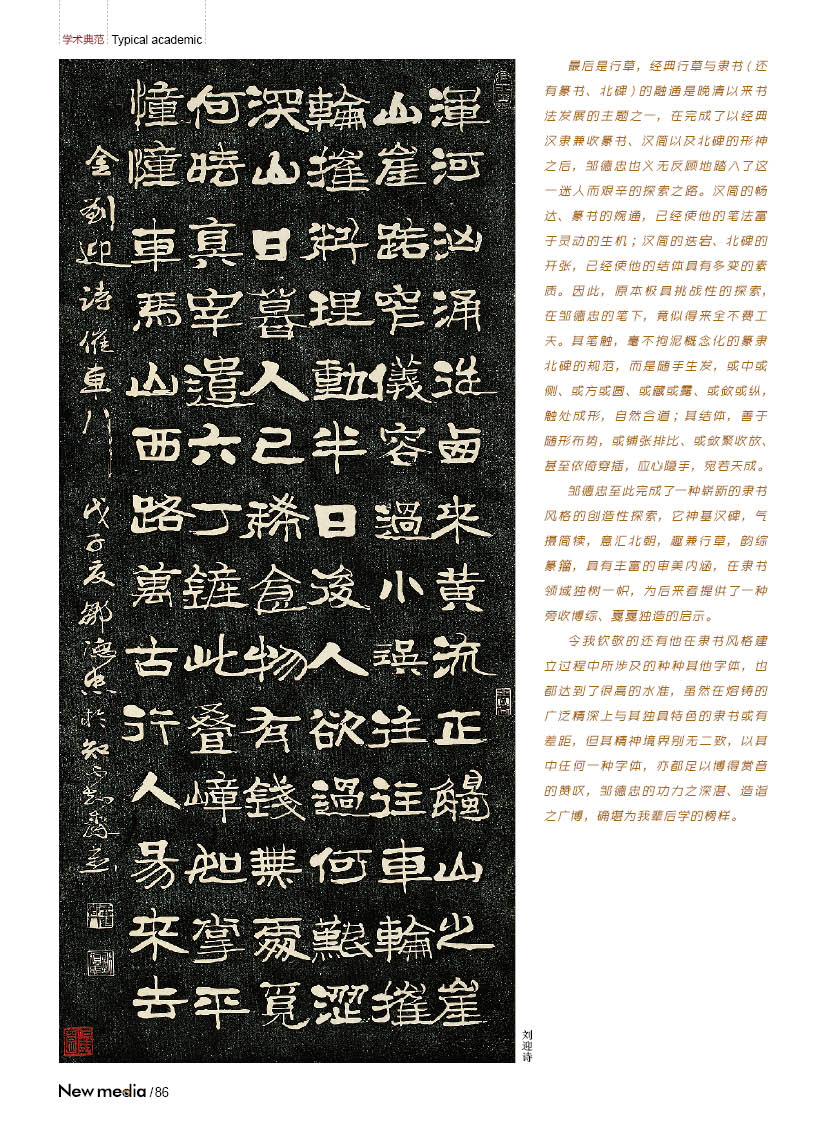 学术典范 Typical academic
渾河汹涌西來黃流正山之崖
山崖路窄儀容過小誤往往車輪摧
輪摧料理動半日後人欲過何艱澀
深山日暮人已稀食物有錢無處覓
何時真宰遣六丁鏟此疊嶂如掌平
憧憧車馬山西路萬古行人易來去
金劉迎诗催車行 戊子夏鄒德忠於知不知齋
刘迎诗
最后是行草，经典行草与隶书（还
有篆书、北碑）的融通是晚清以来书
法发展的主题之一，在完成了以经典
汉隶兼收篆书、汉简以及北碑的形神
之后，邹德忠也义无反顾地踏入了这
一迷人而艰辛的探索之路。汉简的畅
达、篆书的婉通，已经使他的笔法富
于灵动的生机；汉简的迭宕、北碑的
开张，已经使他的结体具有多变的素
质。因此，原本极具挑战性的探索，
在邹德忠的笔下，竟似得来全不费工
夫。其笔触，毫不拘泥概念化的篆隶
北碑的规范，而是随手生发，或中或
侧、或方或圆、或藏或露、或敛或纵，
触处成形，自然合道；其结体，善于
随形布势，或铺张排比、或敛聚收放、
甚至依倚穿插，应心隐手，宛若天成。
邹德忠至此完成了一种崭新的隶书
风格的创造性探索，它神基汉碑，气
摄简牍，意汇北朝，趣兼行草，韵综
篆籀，具有丰富的审美内涵，在隶书
领域独树一帜，为后来者提供了一种
旁收博综、戛戛独造的启示。
令我钦敬的还有他在隶书风格建
立过程中所涉及的种种其他字体，也
都达到了很高的水准，虽然在熔铸的
广泛精深上与其独具特色的隶书或有
差距，但其精神境界别无二致，以其
中任何一种字体，亦都足以博得赏音
的赞叹，邹德忠的功力之深湛、造诣
之广博，确堪为我辈后学的榜样。
New media /86